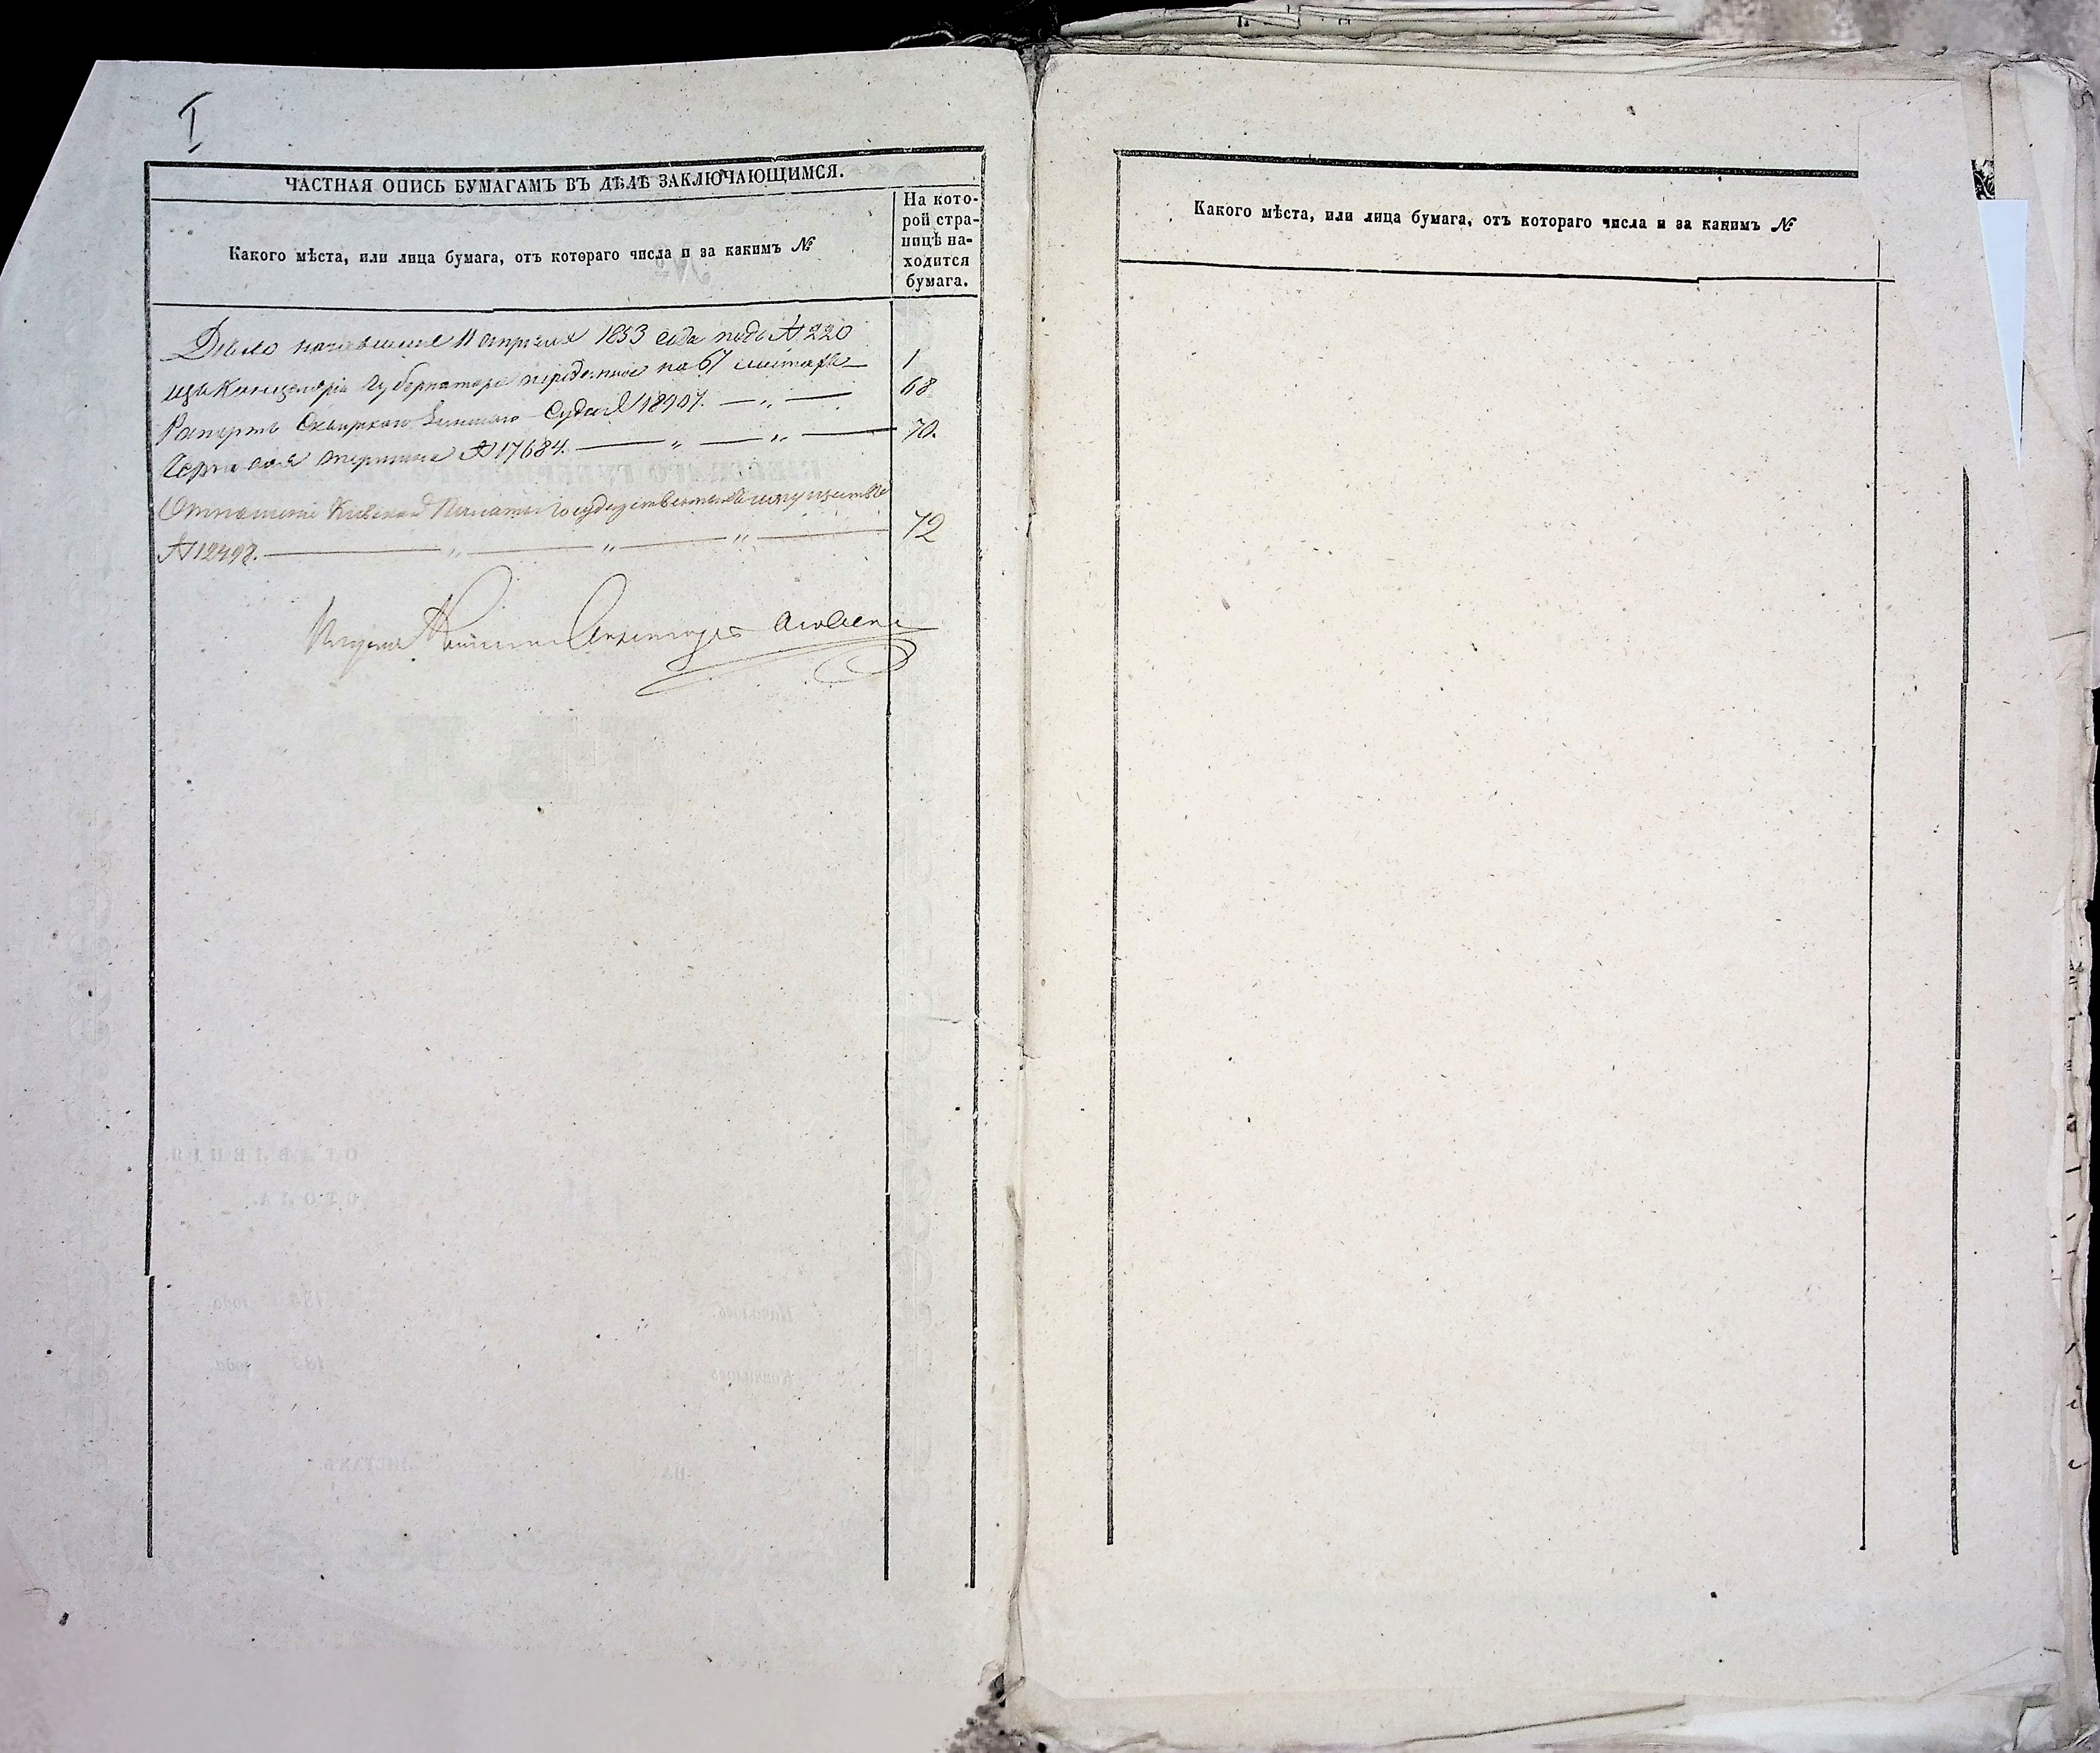 I
ЧАСТНАЯ ОПИСЬ БУМАГАМЪ ВЪ ДѢЛѢ ЗАКЛЮЧАЮЩИМСЯ.
Какого мѣста, или лица бумага, отъ котораго числа и за какимъ №
На кото-
рой стра-
ницѣ на-
ходится
бумага.
Дѣло 11 апрѣля 1853 года подъ № 220
изъ Канцеляріи Губернатора переданное на 67 листахъ — 1
Рапортъ Сквирскаго Земскаго Суда № 18907. — „ — 68
№ 17684. — „ — „ — 70.
Отношеніе Кіевской Палаты Государственныхъ имуществъ
№ 12498. — „ — „ — „ — 72
Какого мѣста, или лица бумага, отъ котораго числа и за какимъ №